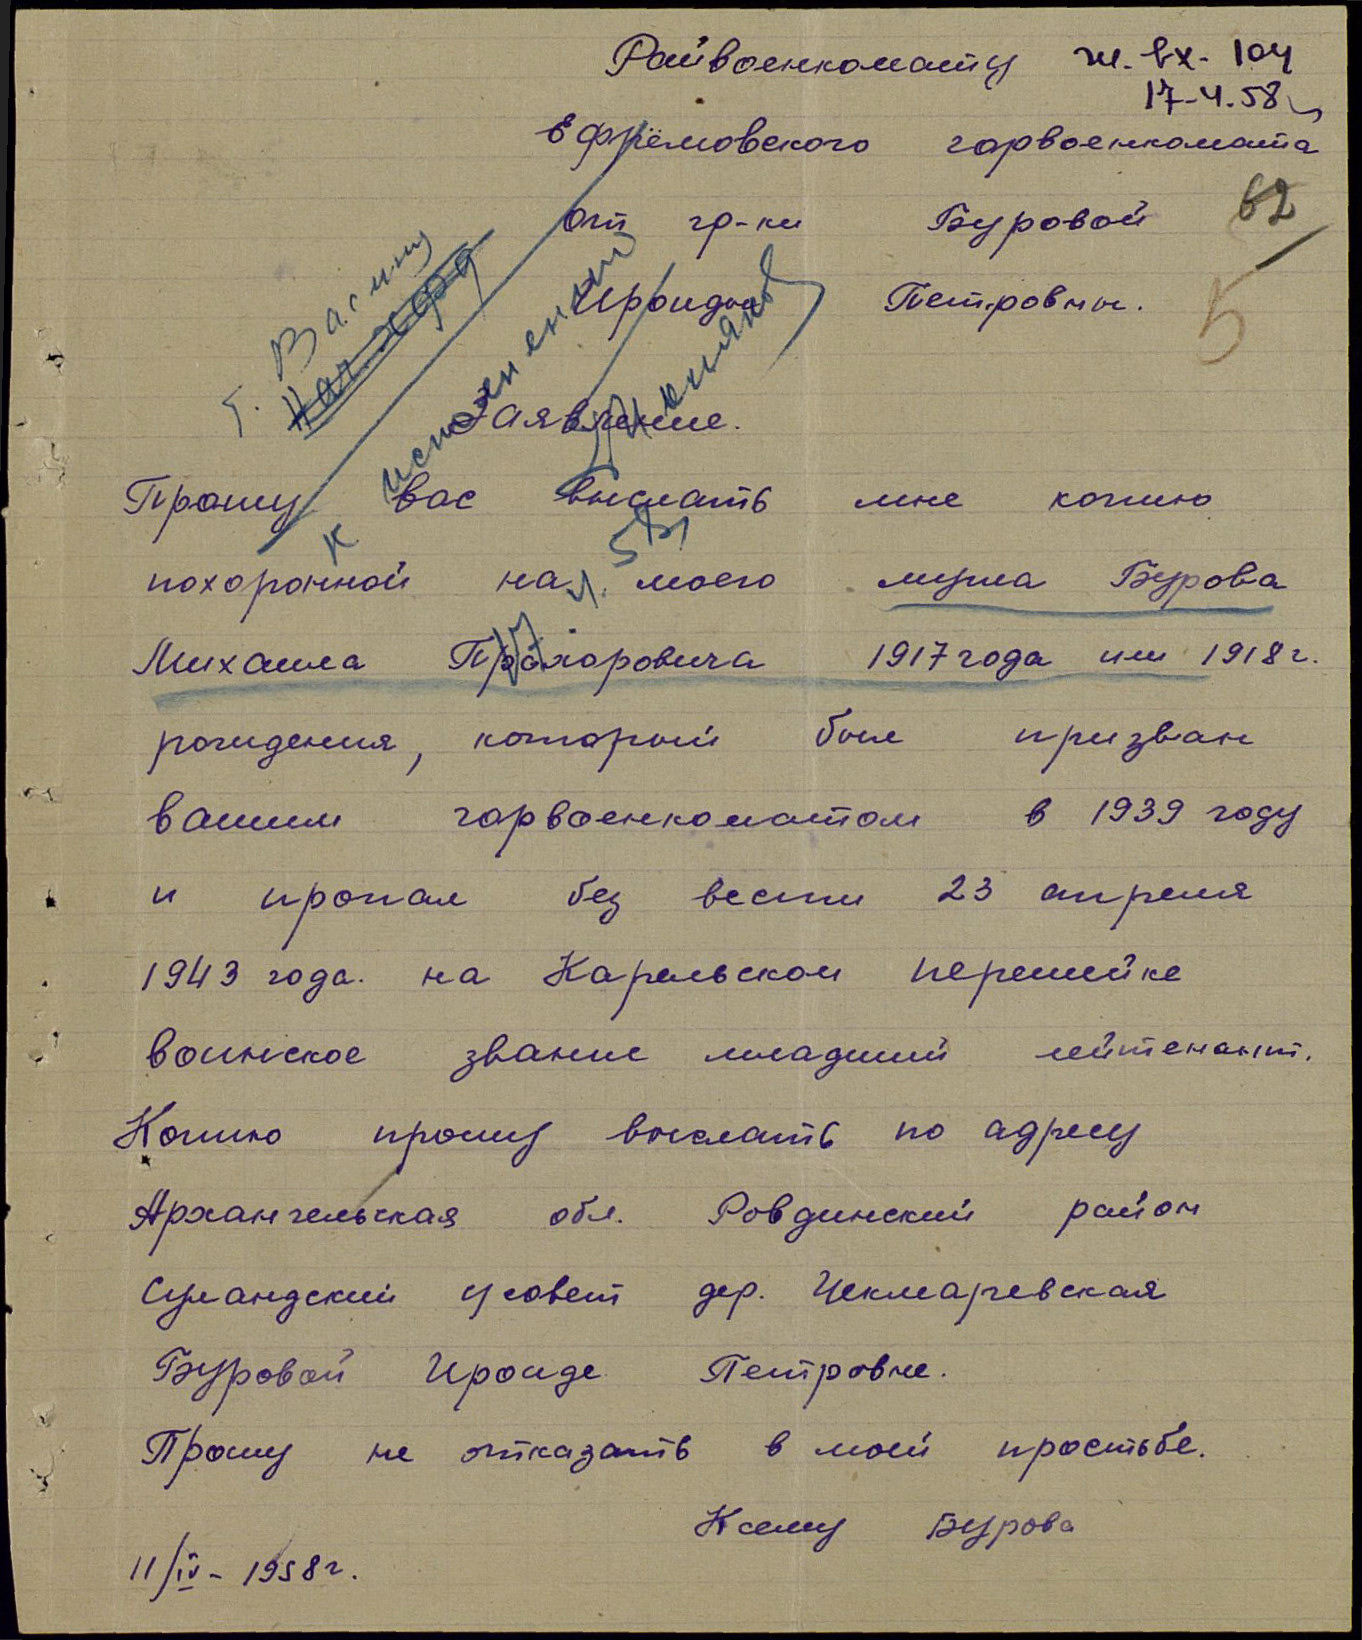 Райвоенкомату
ж. вх. 104
17-4.58
Ефрёмовского горвоенкомата
62
от гр-ки Буровой
Ироиды Петровны.
5
т. Васину
к исполнению
17.4.58
Заявление.
Прошу вас выслать мне копию
похоронной на моего мужа Бурова
Михаила Прохоровича 1917 года или 1918 г.
рождения, который был призван
вашим горвоенкоматом в 1939 году
и пропал без вести 23 апреля
1943 года. на Карельском перешейке
воинское звание младший лейтенант.
Копию прошу выслать по адресу
Архангельская обл. Ровдинский район
Суландский с/совет дер. Чекмаревская
Буровой Ироиде Петровне.
Прошу не отказать в моей простьбе.
К сему Бурова
11/IV - 1958 г.